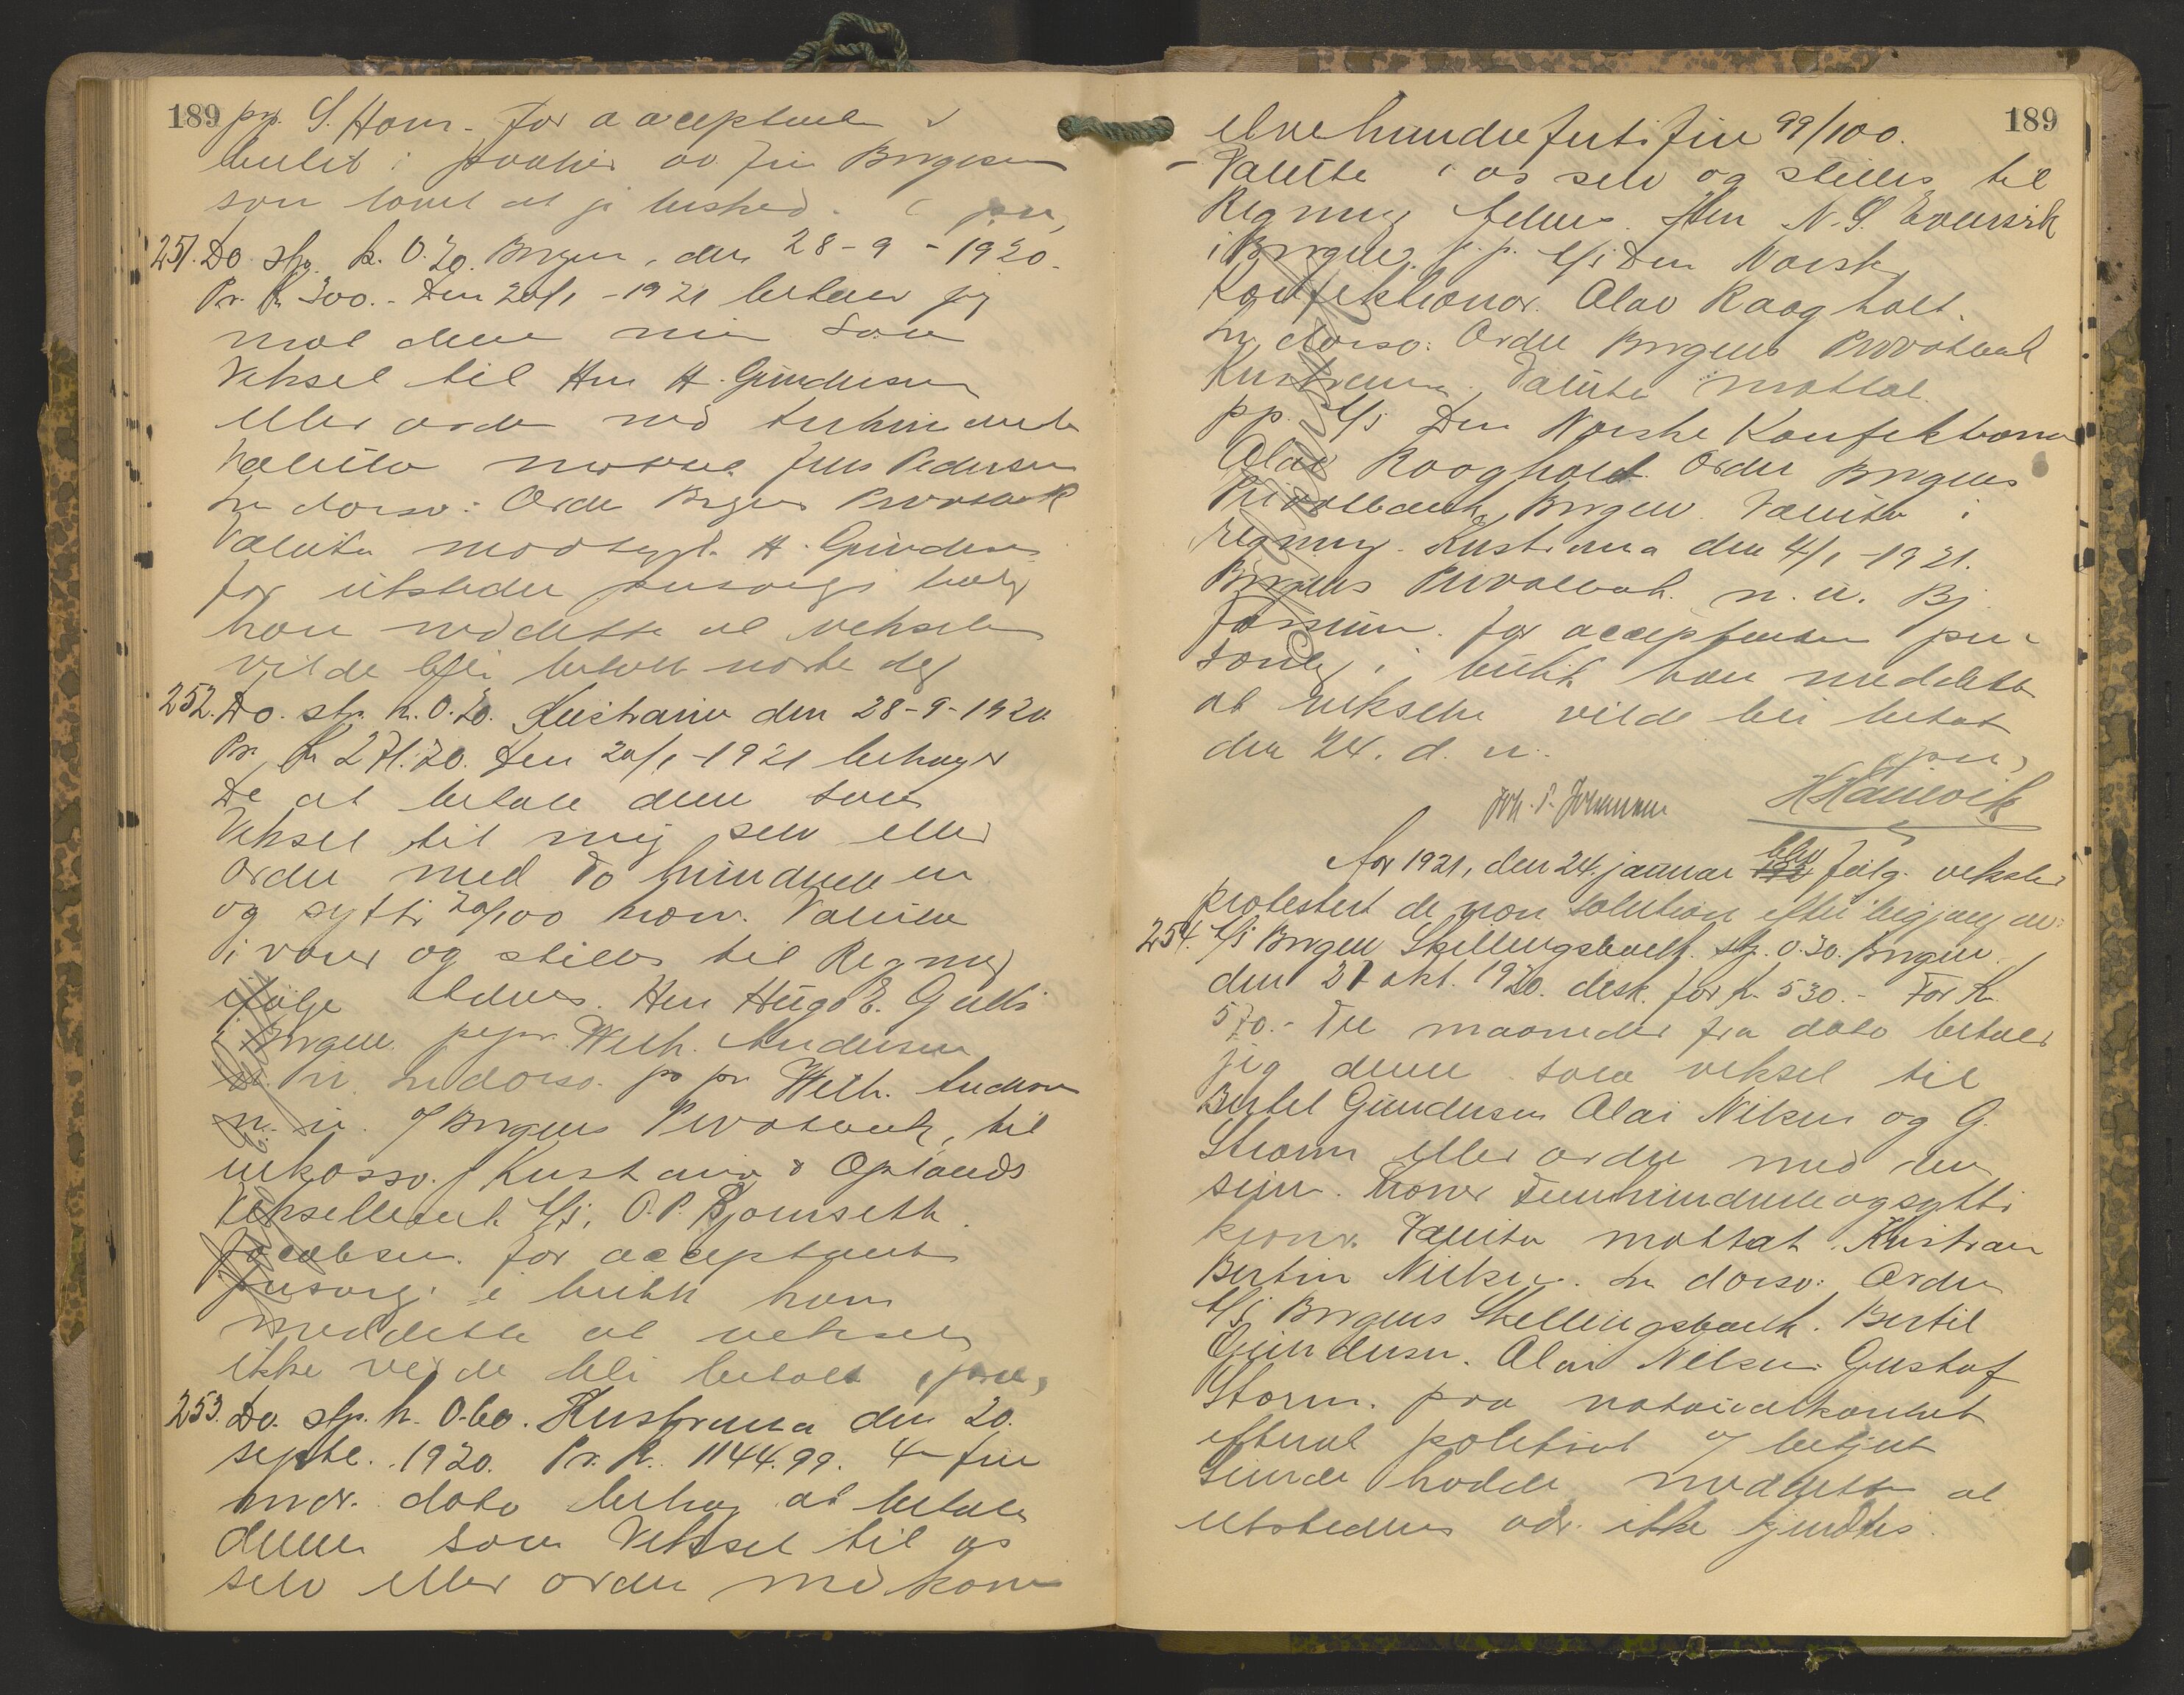 189 pp. S. Hom. for acceptanten
butik
som lovet at gi besked.
251. Do. stp. k. 0.30. Bergen, den 28-9-1920.
Pr. Kr 300.- Den 20/1-1921 betaler jeg
mot denne min Sola
Veksel til Herr H. Gundersen
eller ordre med trehundrede
Valuta Jens Pedersen
In dorso: Ordre Bergens Privatbank
Valuta modtaget. H. Gundersen
for utsteder personlig
han meddelte at vekselen
vilde bli betalt næste dag
252. Do. stp. k. 0.30. Kristiania den 28-9-1920
Pr. Kr 271.20. Den 20/1-1921 behager
De at betale denne Sola
Veksel til mig selv eller
ordre med To hundrede en
og sytti 20/100 kron. Valuta
i varer og stilles til Regning
ifølge Advis. Herr Hugo E.
i Bergen. pp. Wilh. Andersen
In dorso. pp. Wilh. Andersen
Bergens Privatbank, til
inkasso. Kristiania & Oplands
Vekselbank A/S, O.P. Bjørnseth
Jacobsen. for acceptanten
personlig i butik han
meddelte at vekselen
ikke vilde bli betalt
253. Do. stp. k. 0.60. Kristiania den 20.
septbr. 1920. Pr. K. 1144.99. 4 fire
mdr. dato behag at betale
denne Sola Veksel til os
selv eller ordre med kron
189
elvehundrefirtifire 99/100.
Valuta i os selv og stilles til
Regning Advis. Herr N. S. Evensvik
i Bergen. p. p. A/S Den Norske
Konfektionor. Olav Raagholt.
In dorso: Ordre Bergens Privatbank
Kristiania. Valuta mottat.
pp. A/S Den Norske Konfektionor
Olav Raagholt. Ordre Bergens
Privatbank, Bergen. Valuta i
regning. Kristiania den 4/1-1921.
Bergens Privatbank. n. u. Bj.
for acceptanten per-
sonlig i butik han meddelte
at vekselen vilde bli betalt
den 24. d. m.
Joh. P. Johannesen H Hauvik
Aar 1921, den 24. januar blev følg. veksler
protestert de non solution efter begjæring av:
254. A/S Bergens Skillingsbank. stp. 0.30. Bergen,
den 21 okt. 1920. disk. for kr. 530.- For Kr.
570.- Tre maaneder fra dato betaler
jeg denne sola veksel til
Bertel Gundersen Olai Nilsen og G.
Storm eller ordre med den
sum. Kroner Femhundredeogsytti
kroner. Valuta mottat. Kristian
Bertin Nilsen. In dorso: Ordre
A/S Bergens Skillingsbank. Bertil
Gundersen. Olai Nilsen. Gustaf
Storm. paa notarialkontoret
efterat politiet v/ betjent
Sunde hadde meddelt at
utstederens adr. ikke kjendtes.